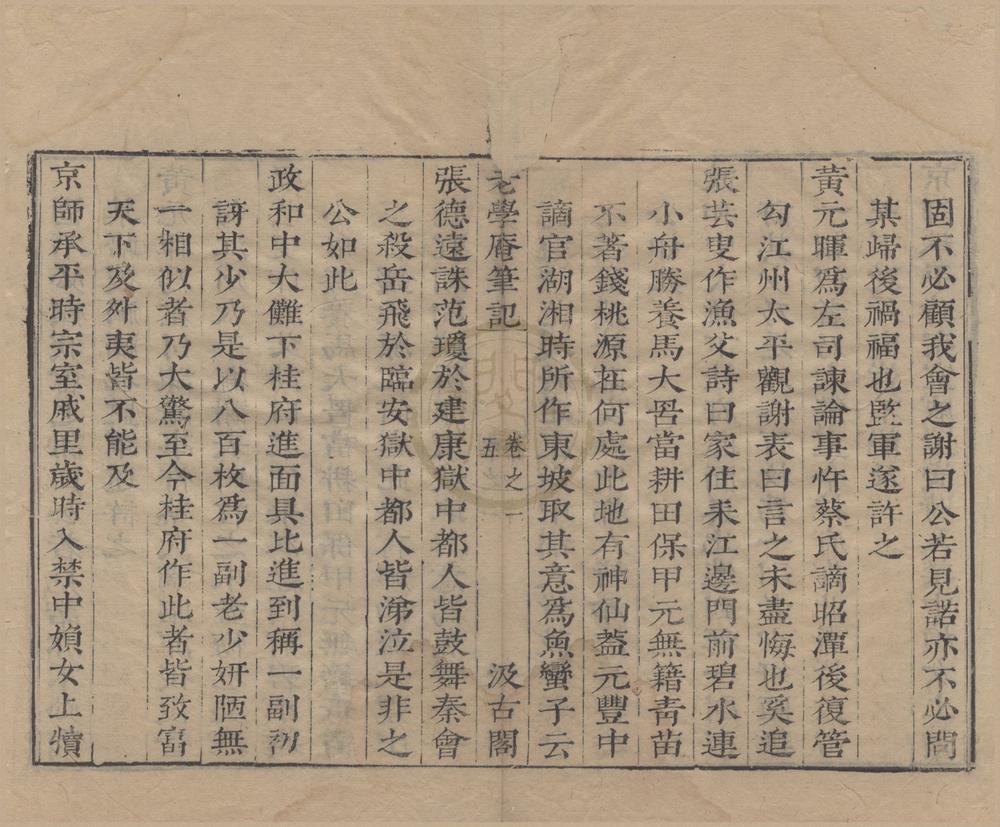 固不必顧我會之謝曰公若見諾亦不必問
某歸後禍福也監軍遂許之
黄元暉爲左司諫論事忤蔡氏謫昭潭後復管
勾江州太平觀謝表曰言之未盡悔也奚追
張芸叟作漁父詩曰家住耒江邊門前碧水連
小舟勝養馬大罟當耕田保甲元無籍靑苗
不著錢桃源在何處此地有神仙蓋元豐中
謫官湖湘時所作東坡取其意爲魚蠻子云
老學庵筆記 卷之一 五 汲古閣
張德遠誅范瓊於建康獄中都人皆鼓舞秦會
之殺岳飛於臨安獄中都人皆涕泣是非之
公如此
政和中大儺下桂府進面具比進到稱一副初
訝其少乃是以八百枚爲一副老少妍陋無
一相似者乃大驚至今桂府作此者皆致富
天下及外夷皆不能及
京師承平時宗室戚里歲時入禁中婦女上犢